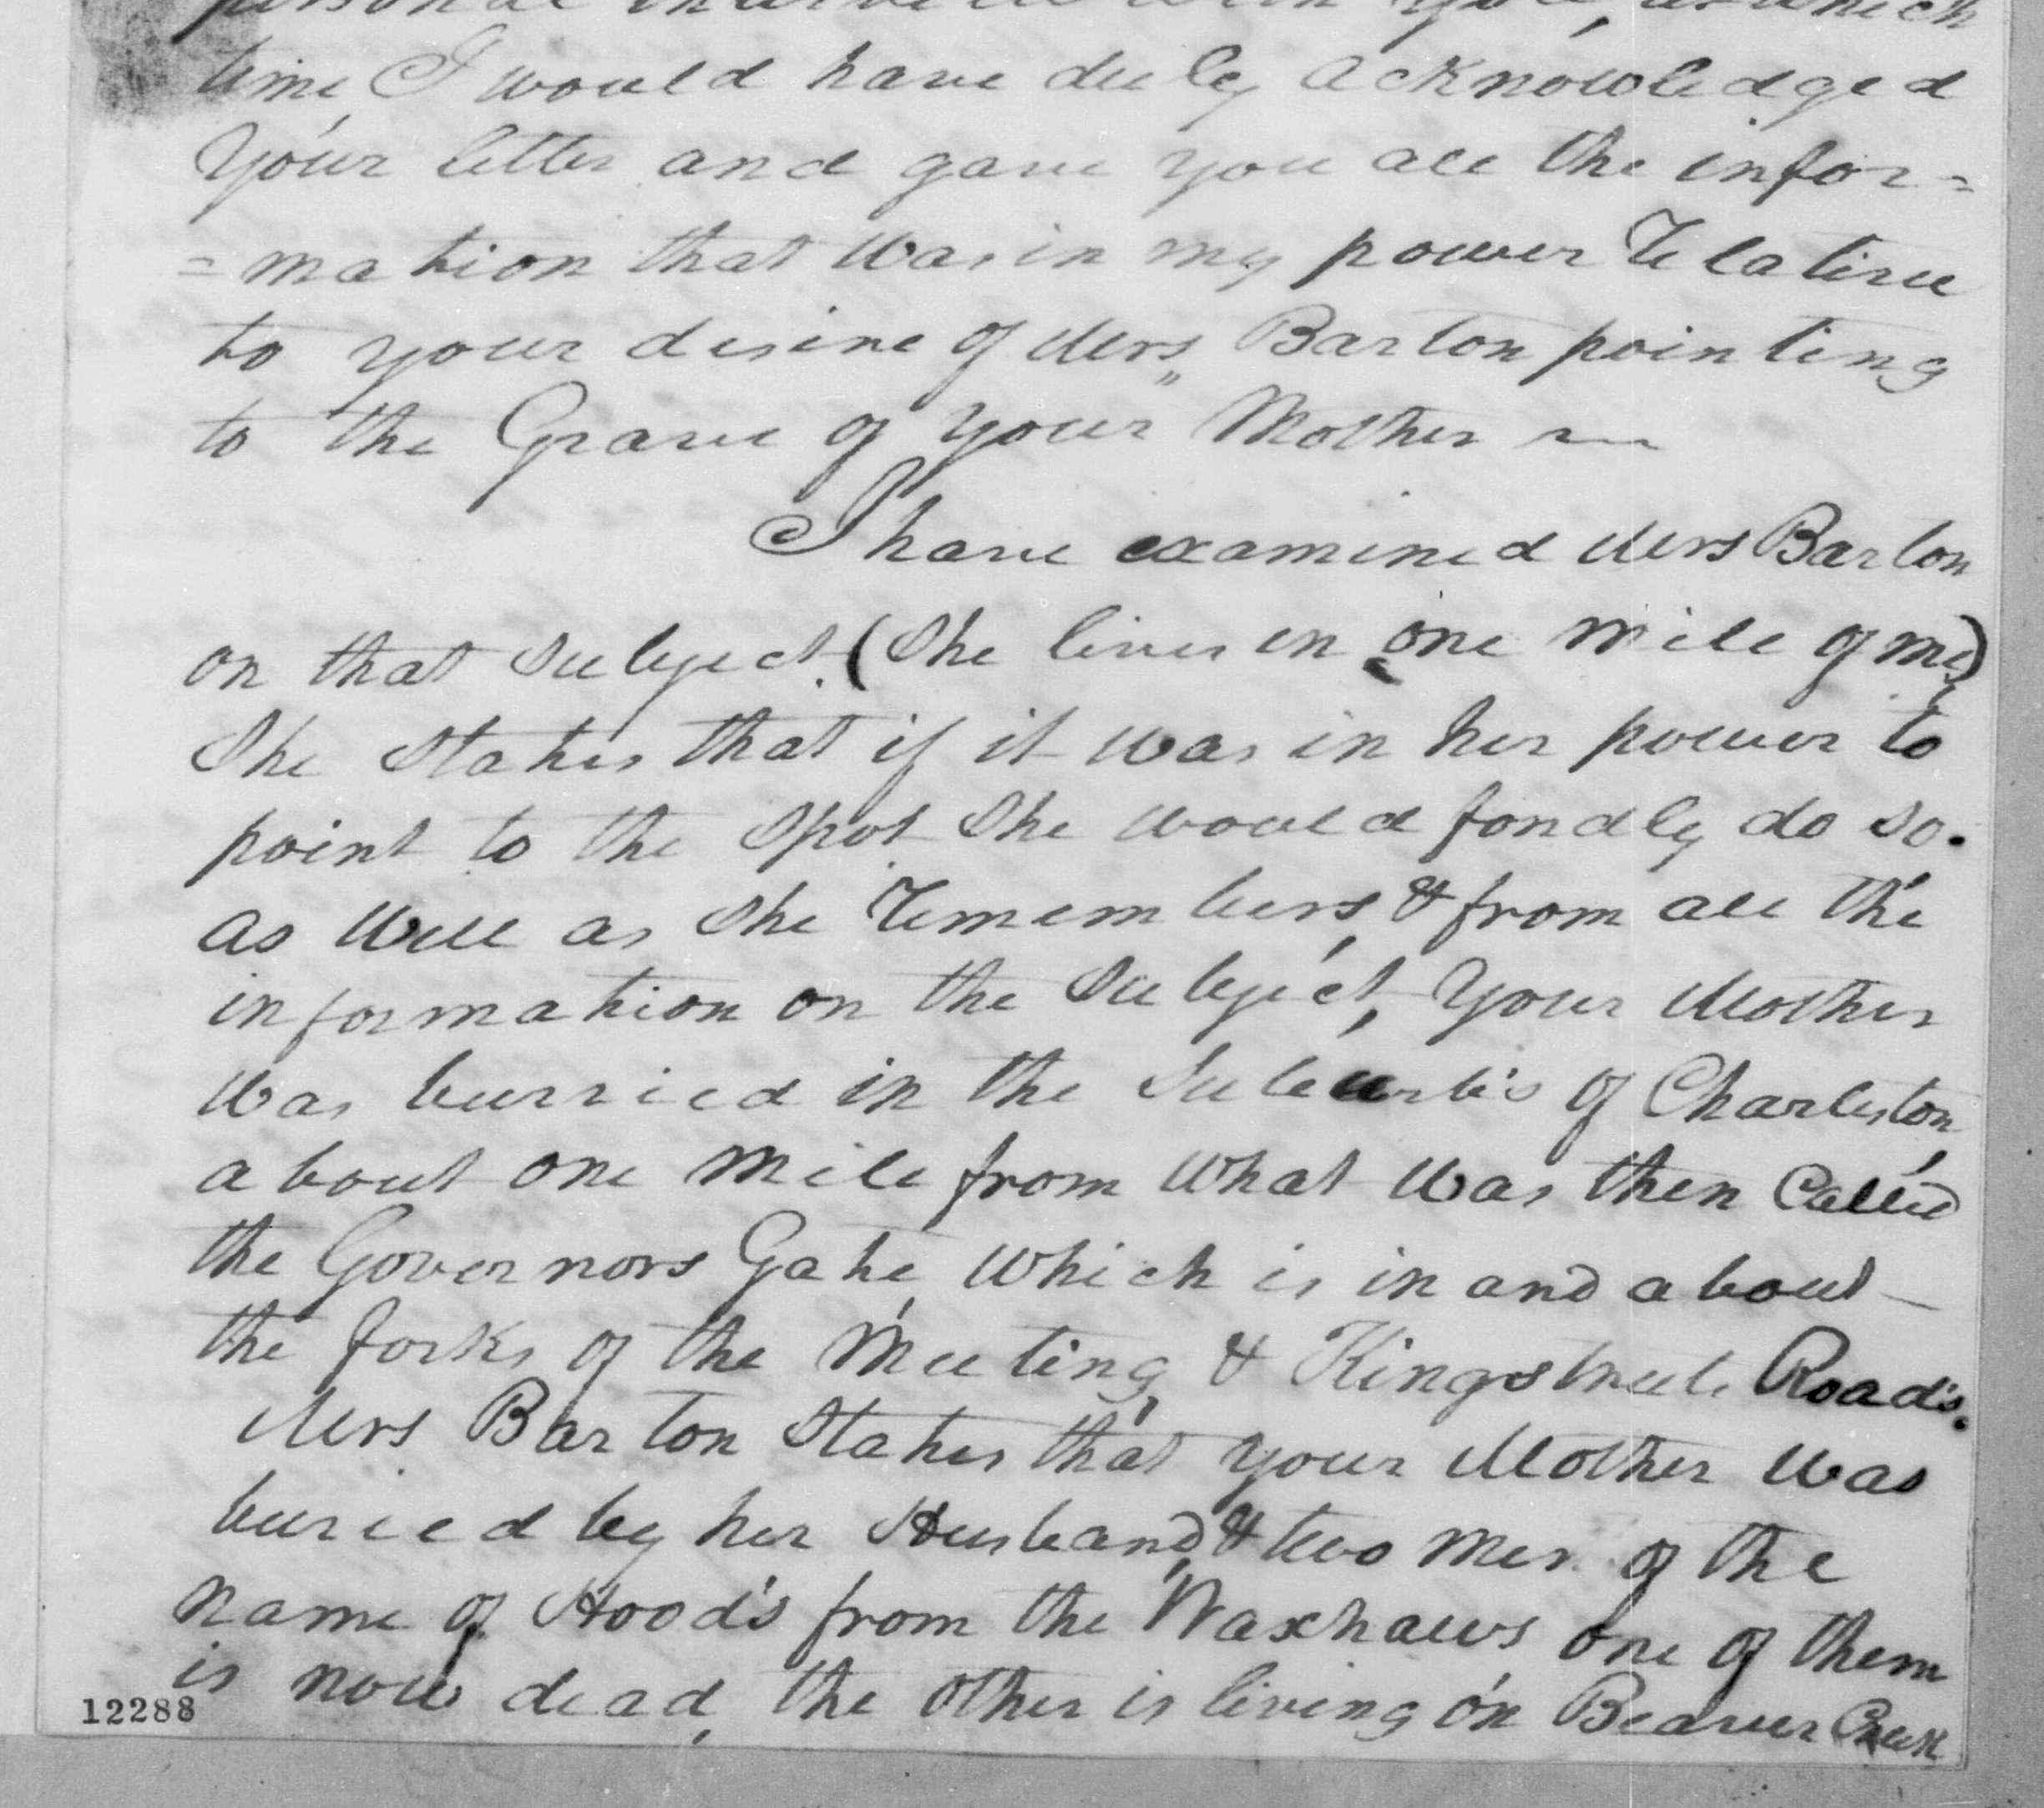 personal interview with you, at which
time, I would have duly acknowledged
Your letter and gave you all the infor=
=mation that was in my power Relative
to your desire of Mrs, Barton pointing
to the Grave of your Mother
I have examined Mrs Barton
on that Subject. (She lives in one mile of me)
She States that if it was in her power to
point to the Spot She would fondly do so.
as Well as She Remembers, & from all the
information on the Subject, Your Mother
was burried in the Suburb's of Charleston,
about one mile from What Was then Called
the Governors Gate, Which is in and about
the forks of the Meeting, & Kingstreete Road's.
Mrs Barton States that your Mother was
buried by her Husband, & two men of the
name of Hood's from the Waxhaws one of them
is now dead, the other is living on Beaver Creek
12288